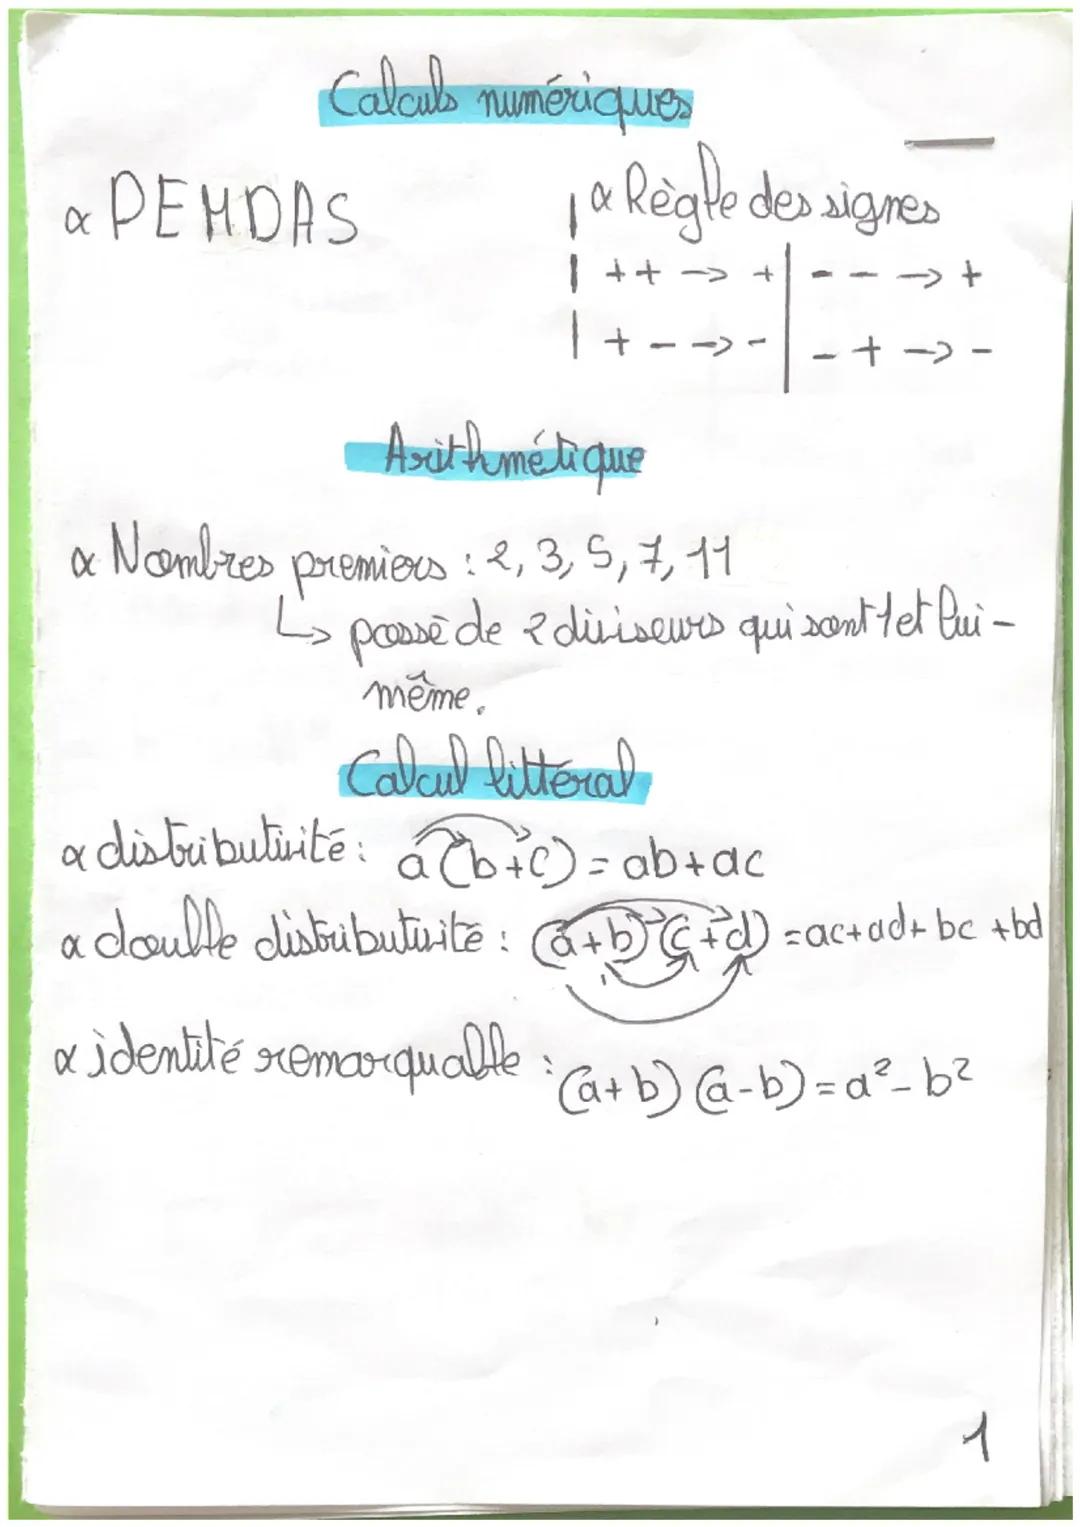 Calculs numériques
α PEMDAS
α Règle des signes
+ + -> + | - - -> +
+ - -> - | - + -> -
Arithmétique
α Nombres premiers : 2, 3, 5, 7, 11
↳ possède 2 diviseurs qui sont 1 et lui-
même.
Calcul littéral
α distributivité : a(b+c) = ab+ac
α double distributivité : (a+b)(c+d) = ac+ad+bc+bd
α identité remarquable : (a+b)(a-b) = a²-b²
1